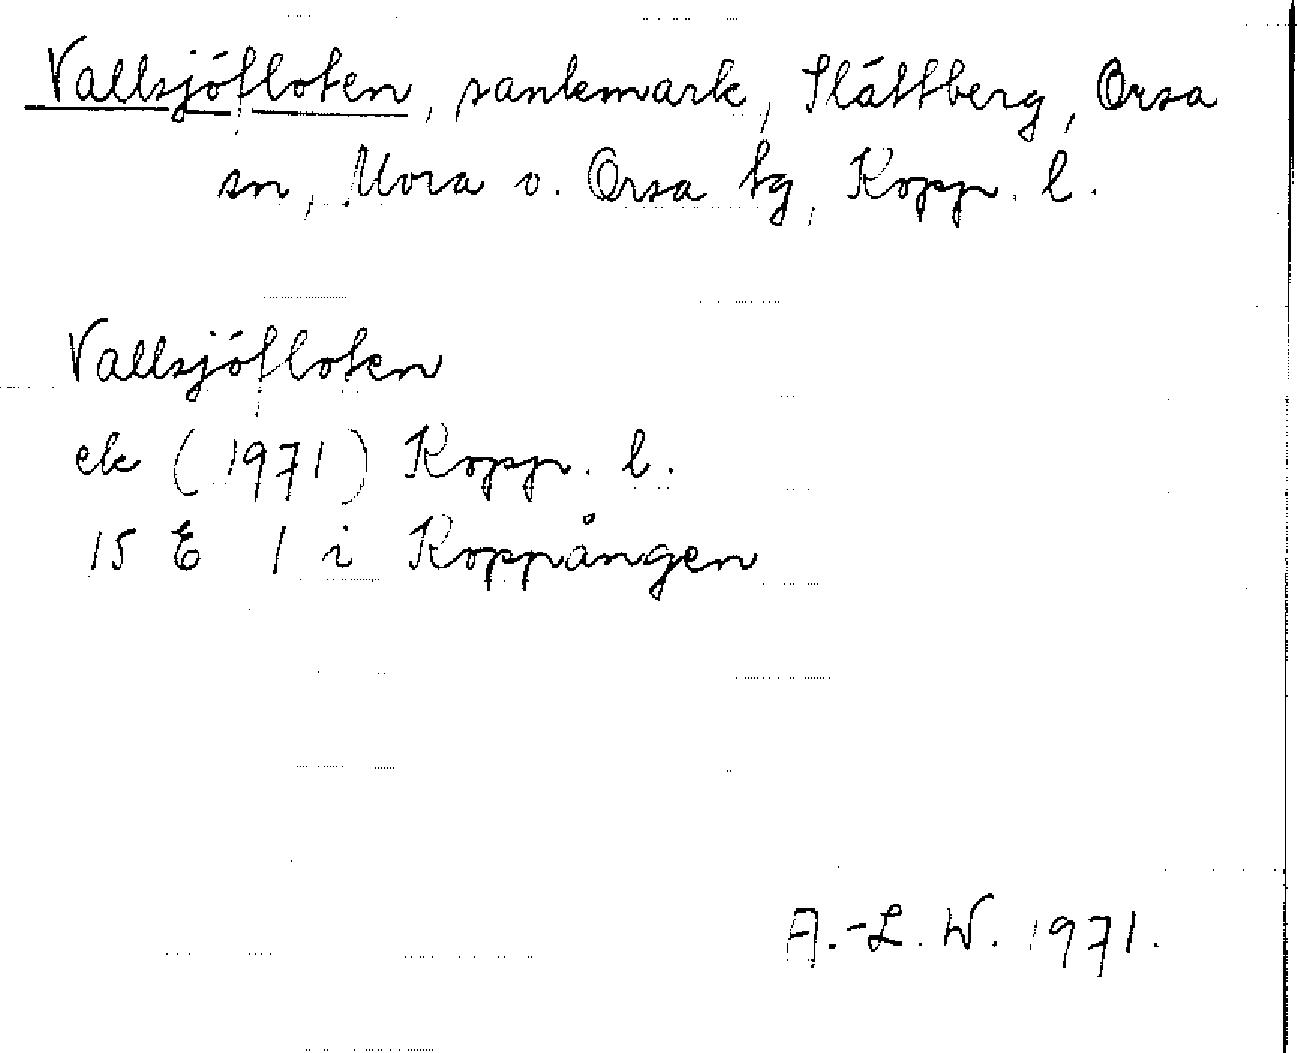 Vallsjöfloten, sankmark, Slättberg, Orsa
sn, Mora o. Orsa tg, Kopp. l.
Vallsjöfloten
ek (1971) Kopp. l.
15 E 1 i Koppången
A.-L. W. 1971.